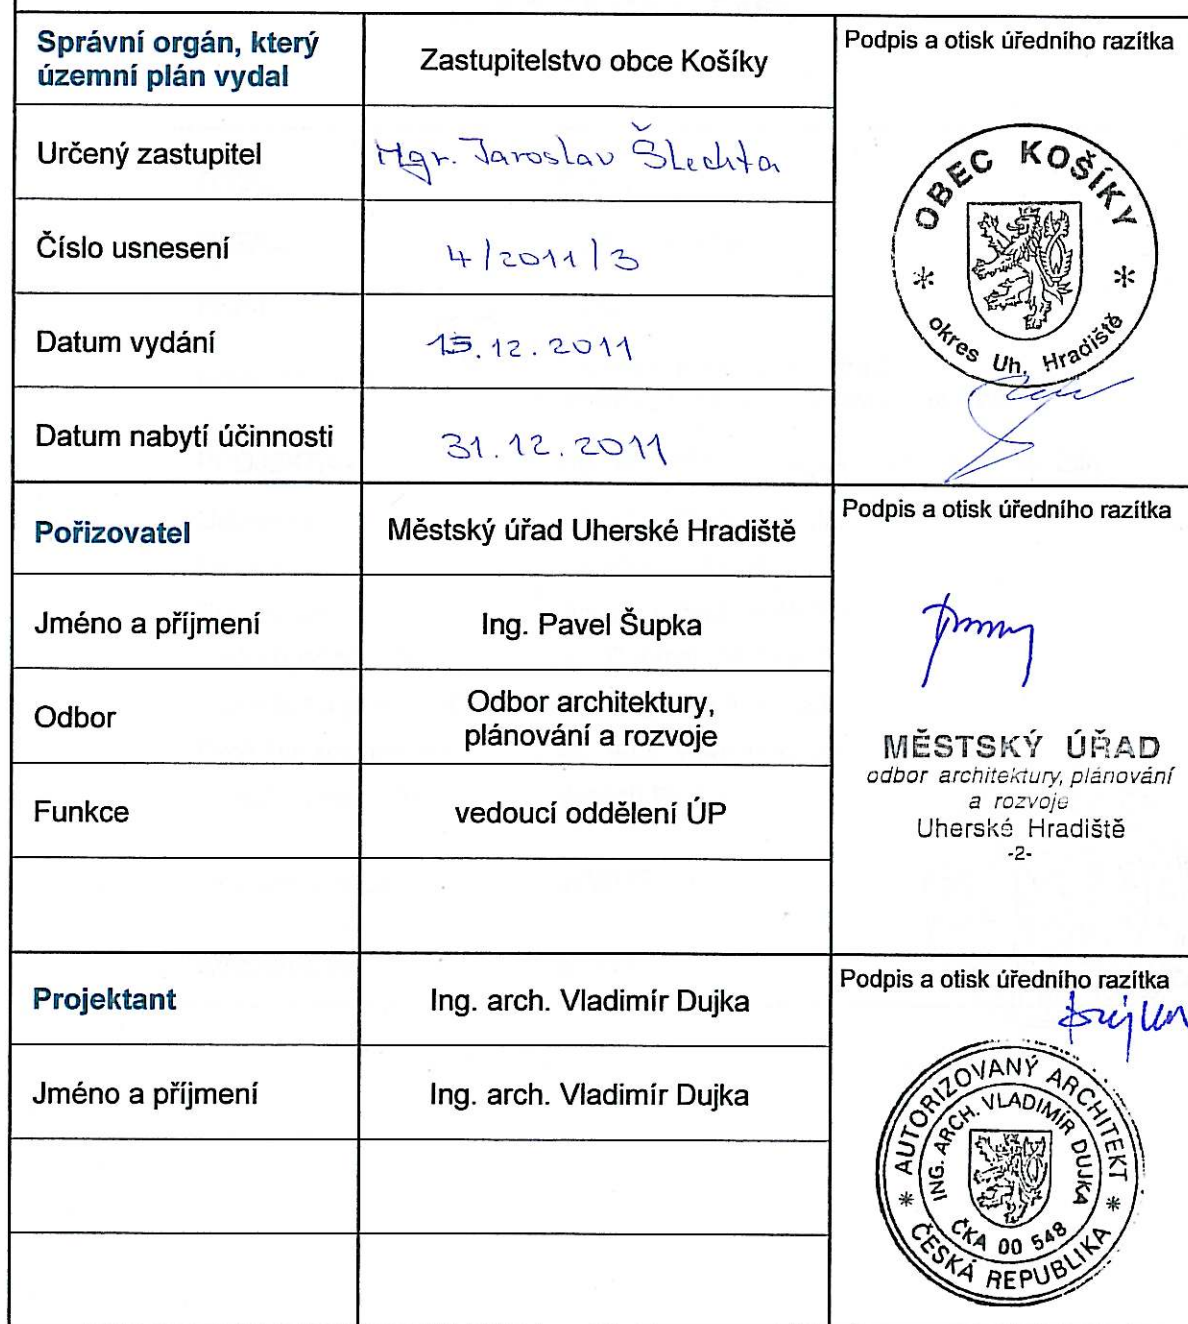 Správní orgán, který
územní plán vydal
Zastupitelstvo obce Košíky
Podpis a otisk úředního razítka
Určený zastupitel
Mgr. Jaroslav Šlechta
OBEC KOŠÍKY
okres Uh. Hradiště
Číslo usnesení
4/2011/3
Datum vydání
15.12.2011
Datum nabytí účinnosti
31.12.2011
Pořizovatel
Městský úřad Uherské Hradiště
Podpis a otisk úředního razítka
Jméno a příjmení
Ing. Pavel Šupka
Odbor
Odbor architektury,
plánování a rozvoje
MĚSTSKÝ ÚŘAD
odbor architektury, plánování
a rozvoje
Uherské Hradiště
-2-
Funkce
vedoucí oddělení ÚP
Projektant
Ing. arch. Vladimír Dujka
Podpis a otisk úředního razítka
Jméno a příjmení
Ing. arch. Vladimír Dujka
AUTORIZOVANÝ ARCHITEKT
ČESKÁ REPUBLIKA
ING. ARCH. VLADIMÍR DUJKA
ČKA 00 548